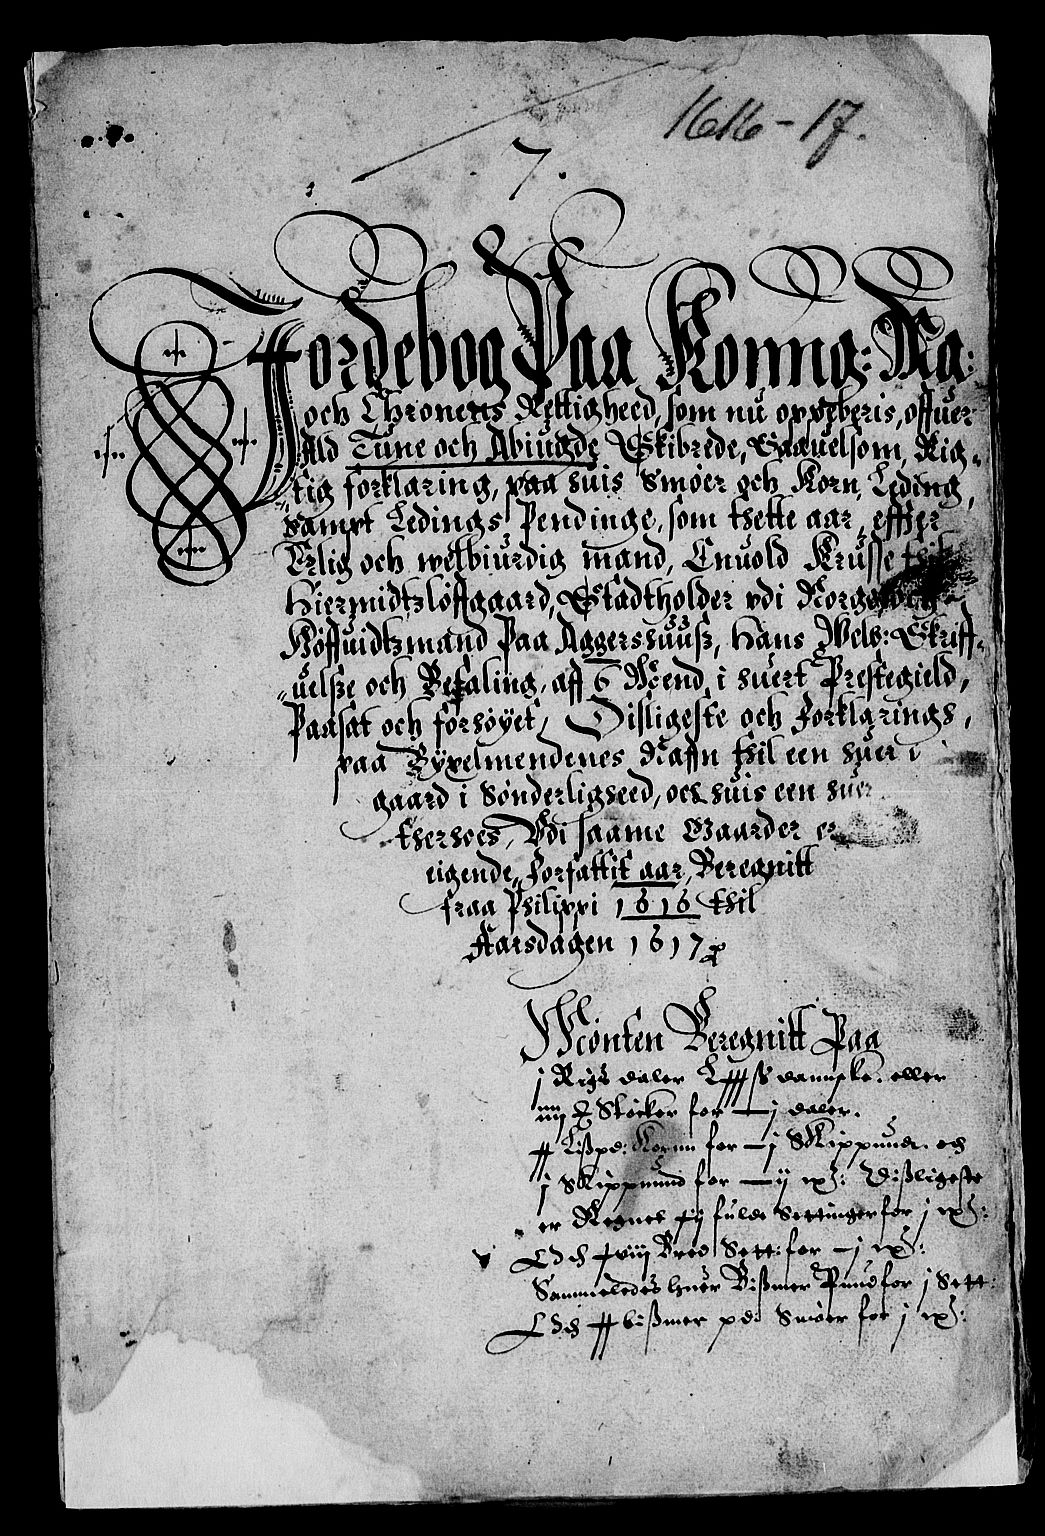 1616-17.
7.
Jordebog Paa Konng: Ma:
och Chronens Rettigheed, som nu oppeberis, offuer
Ald Tune och Abiugde Skibrede, Saauelsom Rig-
tig forklaring, paa huis Smøer och Korn, Leding,
sampt Ledings Pendinge, som thette aar, effter
Erlig och welbiurdig mand, Enuold Krusse thil
Hiermidtzløffgaard, Stadtholder vdi Norge, och
Høffuidtzmand Paa Aggershuusz, Hans Welb: Skriff-
uelsze och Befaling, aff 6 Mend i huert Prestegield,
Paasat och forhøyet, Disligeste och Forklarings,
paa Bøxelmendenes Naffn thil een huer i
gaard i Sønderligheed, och huis een huer
therhoes, Vdi saame Gaarder er
eigende, Forfattit aar, Beregnitt
fraa Philippi 1616 thil
Aarsdagen 1617
Mønten Beregnitt Paa
j Rigs daler dannske. eller
Støcker for j daler.
Lißpd: Kornn for j Skippund. och
j Skippund for ij Disligeste
er Regnet fulde Settinger for j
Och Bred Sett: for j
Sammeledes huer Bißmer Pund for j Sett:
Och bißmer pd: Smøer for j